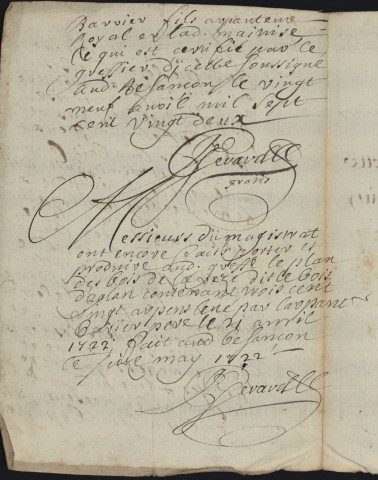 Barbier fils arpanteur
royal en lad. maitrise
ce qui est certifié par le
greffier d'icelle soussigné
aud. Besançon le vingt
neuf avril mil sept
cent vingt deux
gratis
Messieurs du magistrat
ont encore faits porter et
produire aud. greffe le plan
des bois de
contenant trois cent
vingt arpens levé par larpant
père le 21 avril
1722, fait aud. besançon
le seize may 1722